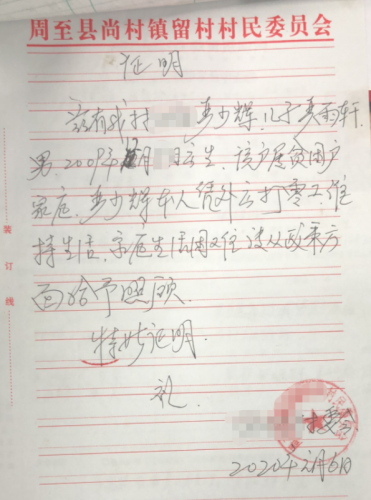 周至县尚村镇留村村民委员会
证明
兹有我村 李少辉,儿子李雨轩,
男,2009年12月 日出生,该户属贫困户
家庭,李少辉本人凭外出打零工维
持生活,家庭生活困难,请从政策方
面给予照顾.
特此证明.
礼.
村委会
2020年2月6日
装订线